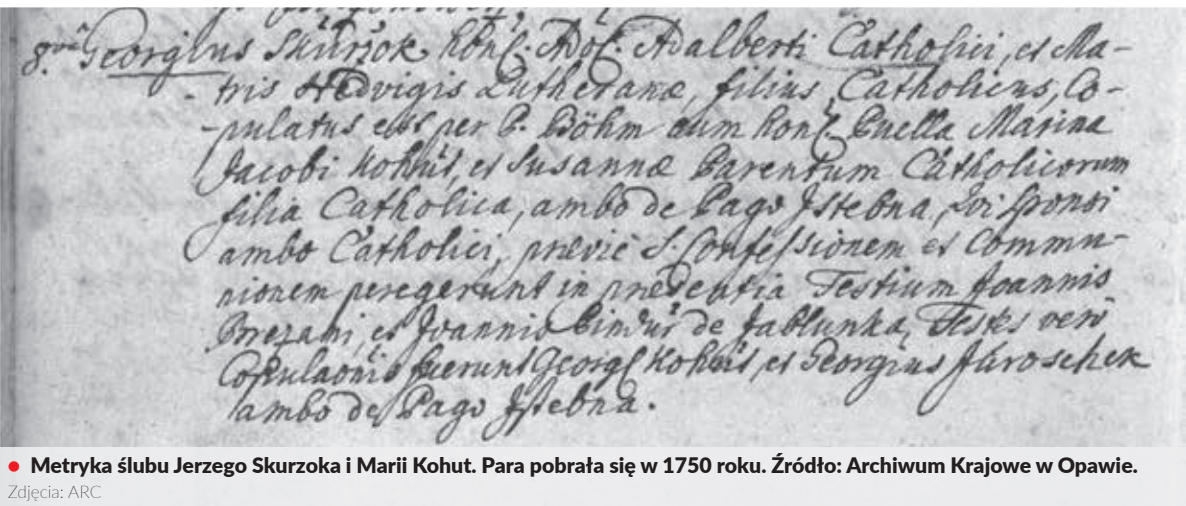 8.va Georgius Skurzok hon. Adol. Adalberti Catholici, et Ma-
tris Hedvigis Lutheranæ, filius Catholicus, Co-
pulatus est per P. Böhm cum hon. Puella Marina
Jacobi Kohut, et Susannæ Parentum Catholicorum
filia Catholica, ambo de Pago Istebna, Qvi Sponsi
ambo Catholici, prævie S. Confessionem et Commu-
nionem peregerunt in Testium Joannis
et Joannis de Jablunka, Testes verò
Copulaonis fuerunt Kohut, et Georgius Juroschek
ambo de Pago Istebna.
• Metryka ślubu Jerzego Skurzoka i Marii Kohut. Para pobrała się w 1750 roku. Źródło: Archiwum Krajowe w Opawie.
Zdjęcia: ARC